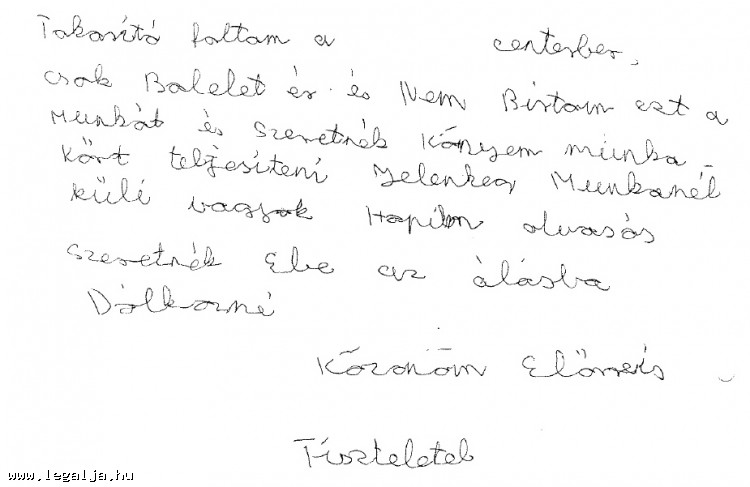 Takasitó foltam a centerber,
csak Balelet ér és Nem Birtam ezt a
Munkát és Szeretnék Kőnyem munka -
kőrt teljesíteni Jelenleg Munkanél
külé vagyok Hobim olvasás
szeretnék Ebe az álásba
Dólkozné
Kőzőnőm Előrreis
Tiszteleteb
www.legalja.hu